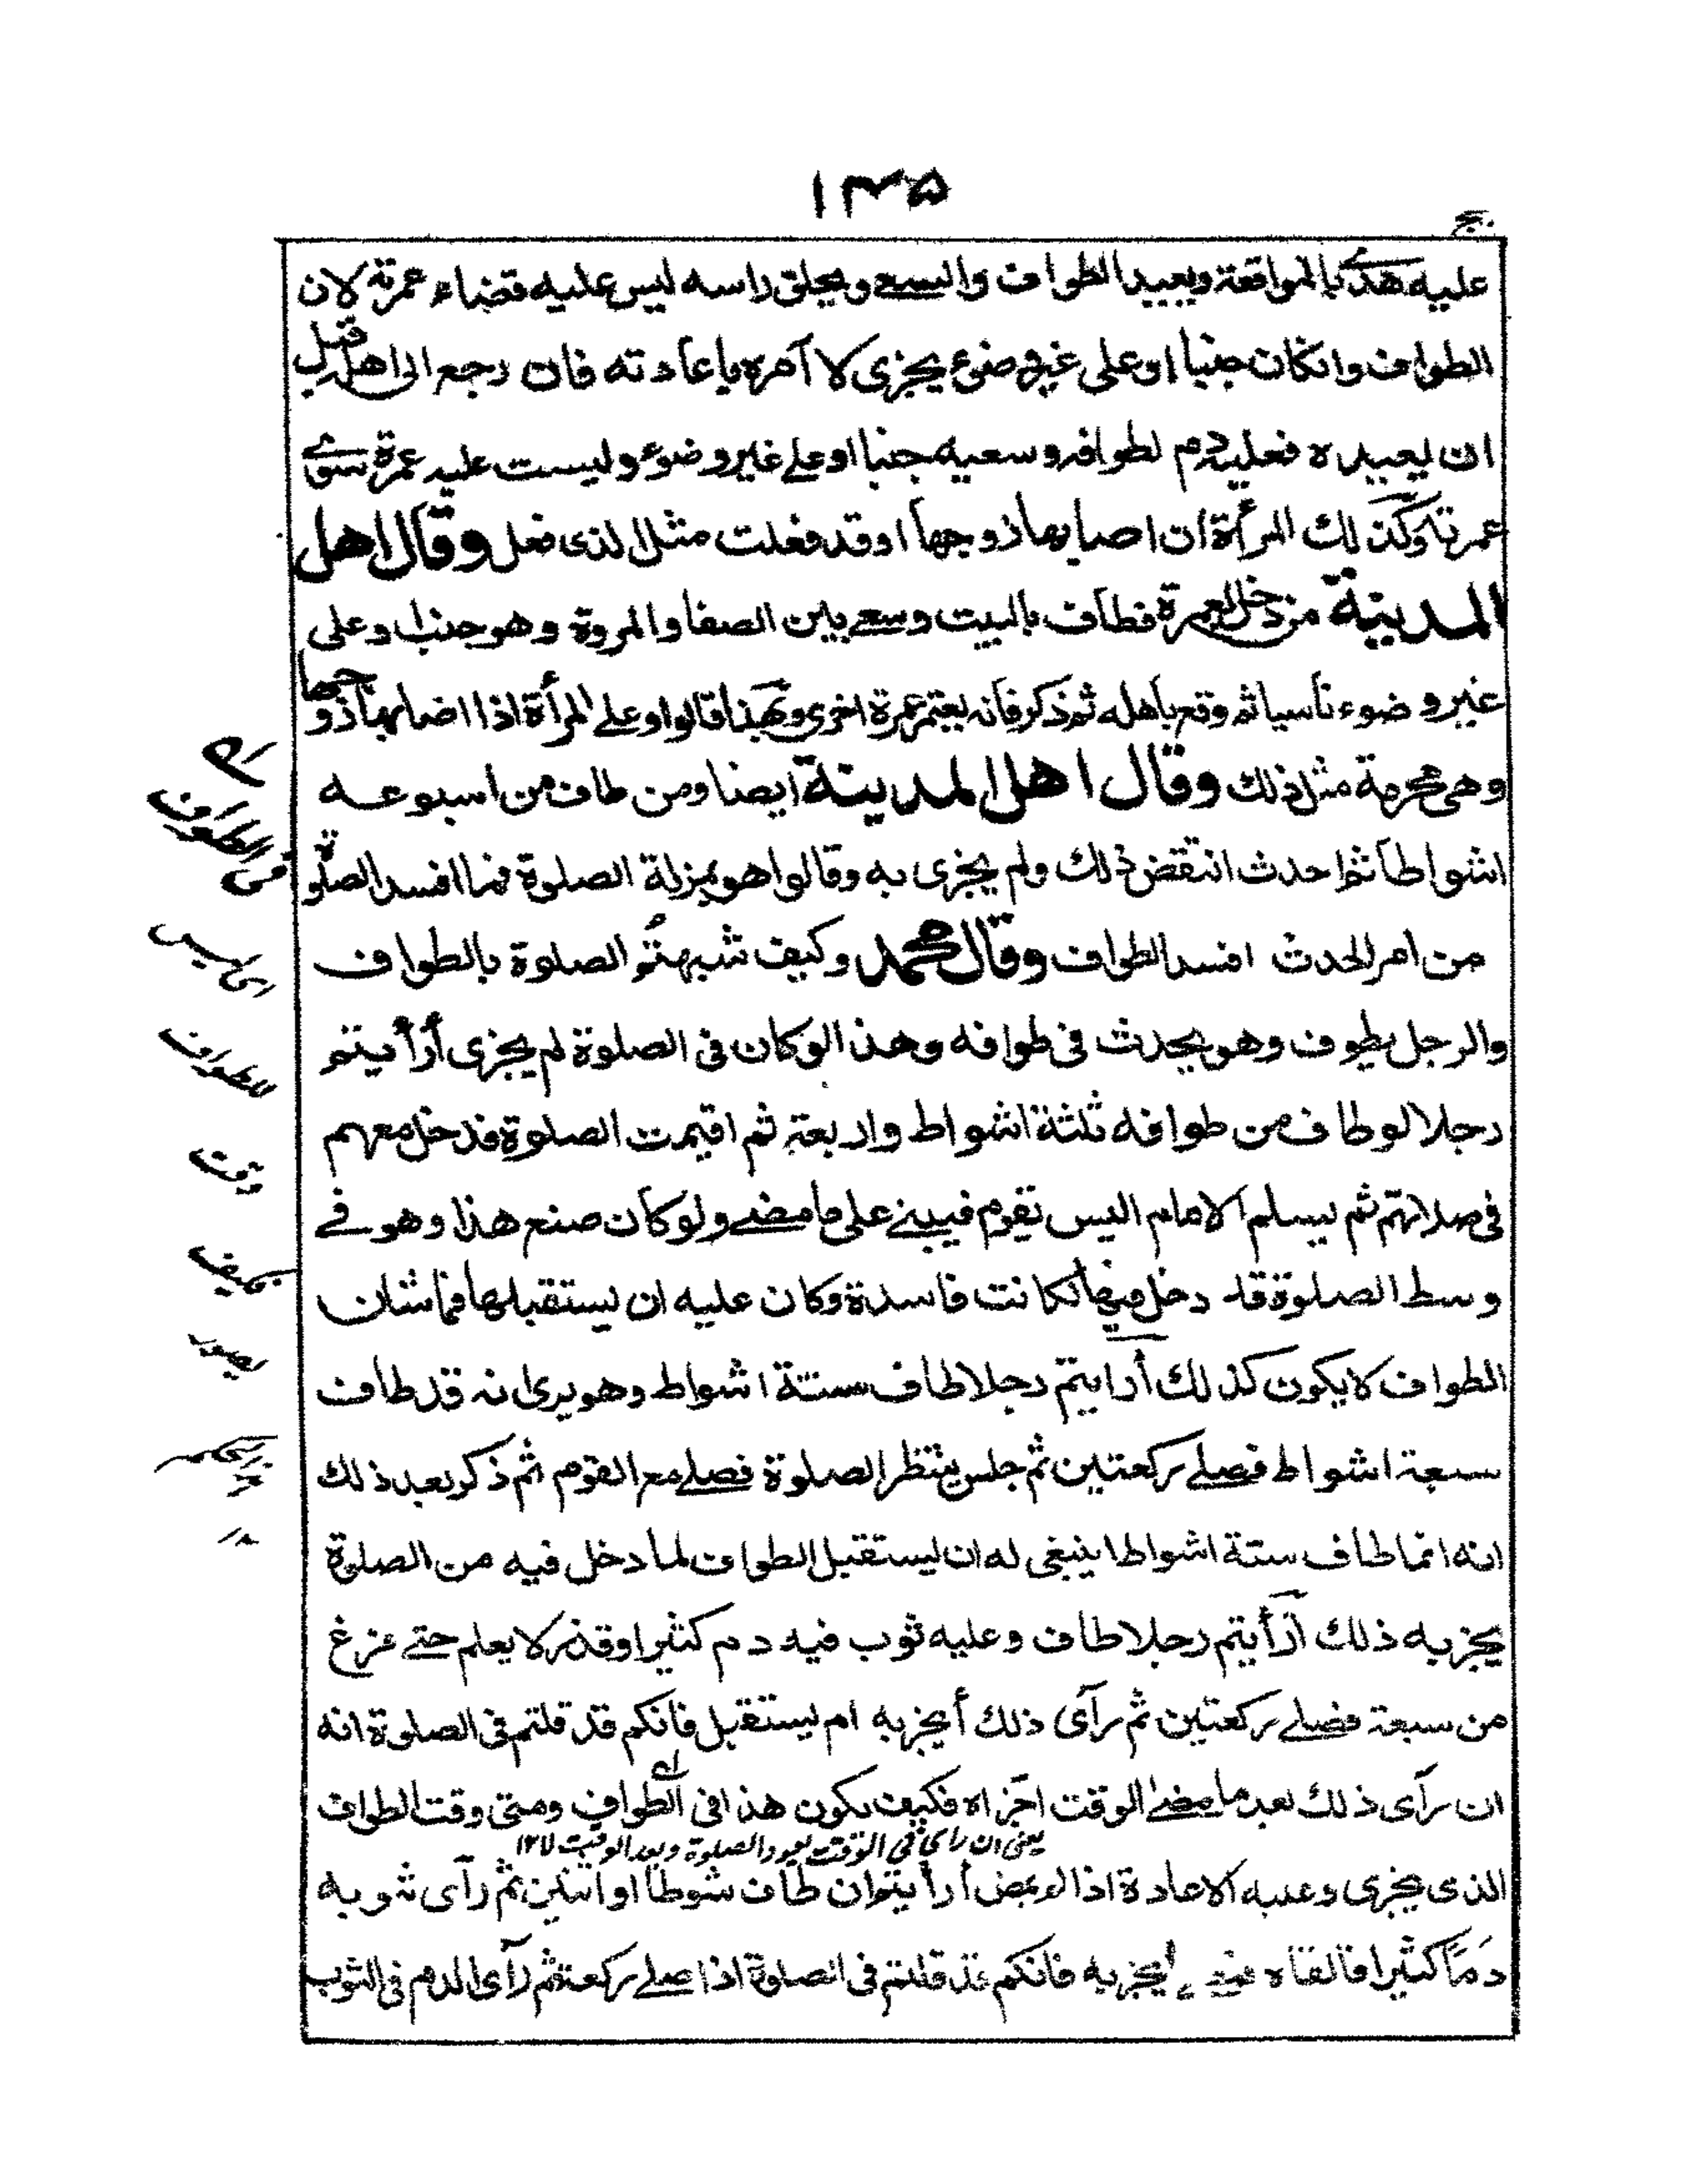 ۱۳۵
حج
عليه هدى بالمواقعة ويعيد الطواف والسعى ويحلق راسه ليس عليه قضاء عمرته لان
الطواف وان كان جنبا او على غير وضوء يجزى لا آمره باعادته فان رجع الى اهله قبل
ان يعيده فعليه دم لطوافه وسعيه جنبا او على غير وضوء وليست عليه عمرة سوى
عمرته وكذلك المرأة ان اصابها زوجها وقد فعلت مثل الذى فعل وقال اهل
المدينة من دخل بعمرة فطاف بالبيت وسعى بين الصفا والمروة وهو جنب او على
غير وضوء ناسيا ثم وقع باهله ثم ذكر فانه يعتمر عمرة اخرى ويهدى قالوا وعلى المرأة اذا اصابها زوجها
وهى محرمة مثل ذلك وقال اهل المدينة ايضا ومن طاف من اسبوعه
اشواطا ثم احدث انتقض ذلك ولم يجزى به وقالوا هو بمنزلة الصلوة فما افسد الصلوة
من امر الحدث افسد الطواف وقال محمد وكيف شبهتم الصلوة بالطواف
والرجل يطوف وهو يحدث فى طوافه وهذا لو كان فى الصلوة لم يجزى أرأيتم
رجلا لو طاف من طوافه ثلثة اشواط واربعة ثم اقيمت الصلوة فدخل معهم
فى صلاتهم ثم يسلم الامام اليس تقوم فيبنى على ما مضى ولو كان صنع هذا وهو فى
وسط الصلوة قد دخل فيها لكانت فاسدة وكان عليه ان يستقبلها فما شان
الطواف لا يكون كذلك أرايتم رجلا طاف ستة اشواط وهو يرى انه قد طاف
سبعة اشواط فصلى ركعتين ثم جلس ينتظر الصلوة فصلى مع القوم ثم ذكر بعد ذلك
انه انما طاف ستة اشواط اينبغى له ان يستقبل الطواف لما دخل فيه من الصلوة
يجزيه ذلك أرأيتم رجلا طاف وعليه ثوب فيه دم كثير او قذر لا يعلم حتى فرغ
من سبعة فصلى ركعتين ثم رآى ذلك أيجزيه ام يستقبل فانكم قد قلتم فى الصلوة انه
ان رآى ذلك بعد ما مضى الوقت اجزاه فكيف يكون هذا فى الطواف ومتى وقت الطواف
يعنى ان راى فى الوقت يعيد الصلوة وبعد الوقت لا ۱۲
الذى يجزى وعليه الاعادة اذا لم يمض أرأيتم ان طاف شوطا او اثنين ثم رآى ثوبه
دمًا كثيرا فالقاه أيجزيه فانكم قد قلتم فى الصلوة اذا صلى ركعة ثم رآى الدم فى الثوب
الطواف
فى
ليس
للطواف
وقت
فكيف